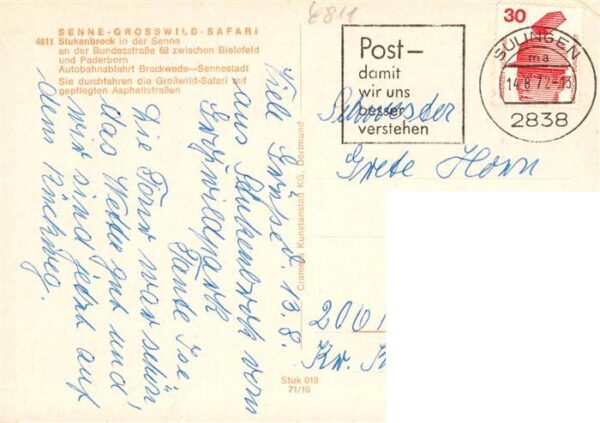 SENNE-GROSSWILD-SAFARI
4811 Stukenbrock in der Senne
an der Bundesstraße 68 zwischen Bielefeld
und Paderborn
Autobahnabfahrt Brackwede—Sennestadt
Sie durchfahren die Großwild-Safari auf
gepflegten Asphaltstraßen
Viele Grüße d. 13.8.
aus Stukenbrock vom
Großwildpark
Tante Ise
Die Tour war schön
das Wetter gut und
wir sind jetzt auf
dem Rückweg.
Cramers Kunstanstalt KG, Dortmund
Stuk 019
71/10
£811
Post—
damit
wir uns
besser
verstehen
30
SULINGEN
ma
14.8.72-15
2838
Schwester
Grete Horn
2061
Kr.